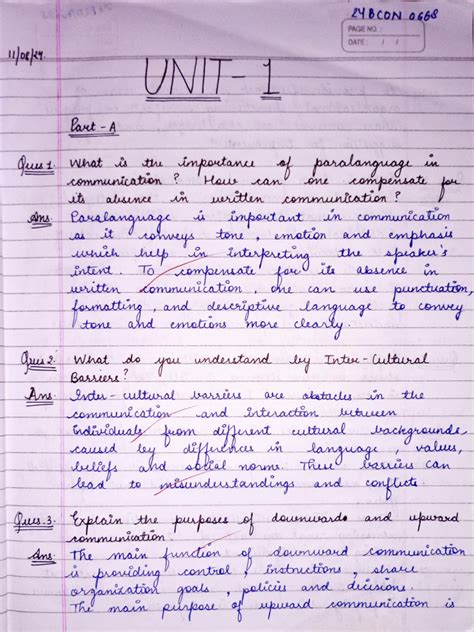 24BCON 0668
PAGE NO.:
DATE: / /
11/08/24.
UNIT-1
Part-A
Ques 1. What is the importance of paralanguage in
communication? How can one compensate for
its absence in written communication?
Ans. Paralanguage is important in communication
as it conveys tone, emotion and emphasis
which help in interpreting the speaker's
intent. To compensate for its absence in
written communication, one can use punctuation,
formatting, and descriptive language to convey
tone and emotions more clearly.
Ques 2. What do you understand by Inter-Cultural
Barriers?
Ans. Inter-cultural barriers are obstacles in the
communication and interaction between
Individuals from different cultural backgrounds,
caused by differences in language, values,
beliefs and social norms. These barriers can
lead to misunderstandings and conflicts.
Ques. 3. Explain the purposes of downwards and upward
communication.
Ans. The main function of downward communication
is providing control, instructions, share
organization goals, policies and decisions.
The main purpose of upward communication is